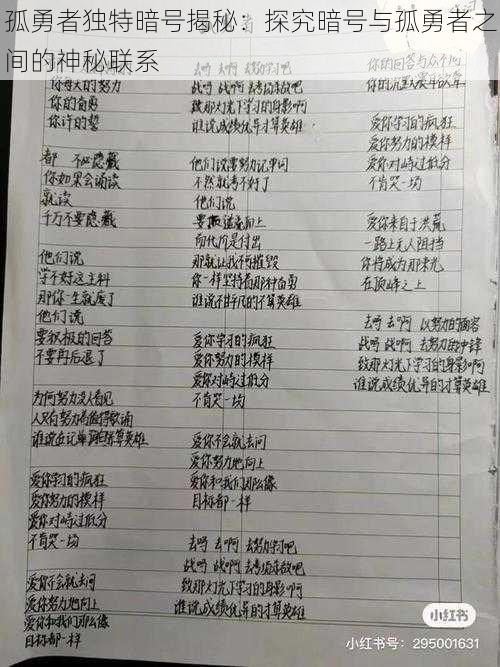 孤勇者独特暗号揭秘：探究暗号与孤勇者之
间的神秘联系
你每天的努力
你的自愈
你许的誓
都 不必隐藏
你如果会诵读
就读
千万不要隐藏
他们说
学不好这主科
那你一生就废了
他们说
要积极的回答
不要再后退了
为何努力没人看见
人只有努力
爱你学习的疯狂
爱你努力的模样
爱你对峙过低分
不肯哭一场
爱你不会就去问
爱你努力地向上
爱你和我们那么像
目标都一样
去吗 去啊 去努力学习吧
战吗 战啊 去考场求敌吧
致那灯光下学习的身影啊
谁说成绩优异才算英雄
他们说要努力记单词
不然就考不好了
他们说
要
而代价是付出
那就让我不可摧毁
你一样坚持着那种奋勇
谁说不非凡的不算英雄
爱你学习的疯狂
爱你努力的模样
爱你对峙过低分
不肯哭一场
爱你不会就去问
爱你努力地向上
爱你和我们那么像
目标都一样
去吗 去啊 去努力学习吧
战吗 战啊 去考场求敌吧
致那灯光下学习的身影啊
谁说成绩优异的才算英雄
你的回答与众不同
爱你学习的疯狂
爱你努力的模样
爱你对峙过低分
不肯哭一场
爱你来自于洪荒
一路上无人阻挡
你将成为那束光
在顶峰之上
去吗 去啊 以努力的面容
战吗 战啊 去努力的冲锋
致那灯光下学习的身影啊
谁说成绩优异的才算英雄
小红书
小红书号：295001631